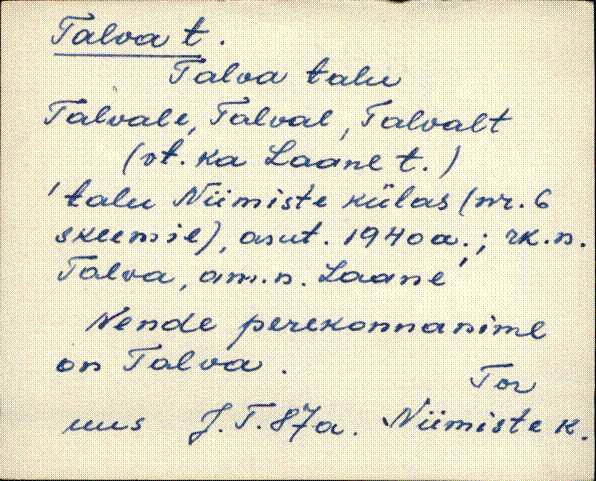 Talva t.
Talva talu
Talvale, Talval, Talvalt
(vt. ka Laane t.)
'talu Niimiste külas (nr. 6
skeemil), asut. 1940a.; rk.n.
Talva, am.n. Laane'
Nende perekonnanime
on Talva.
Tor
uus J.T.87a. Niimiste k.